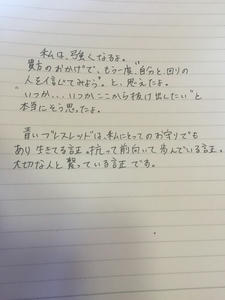 私は、強くなるよ。
貴方のおかげで、もう一度、自分と、回りの
人を信じてみよう。と、思えたよ。
"いつか...いつかここから抜け出したい"と
本当にそう思ったよ。
青いブレスレットは、私にとってのお守りでも
あり生きてる証。抗って前向いて歩んでいる証。
大切な人と繋っている証でる。